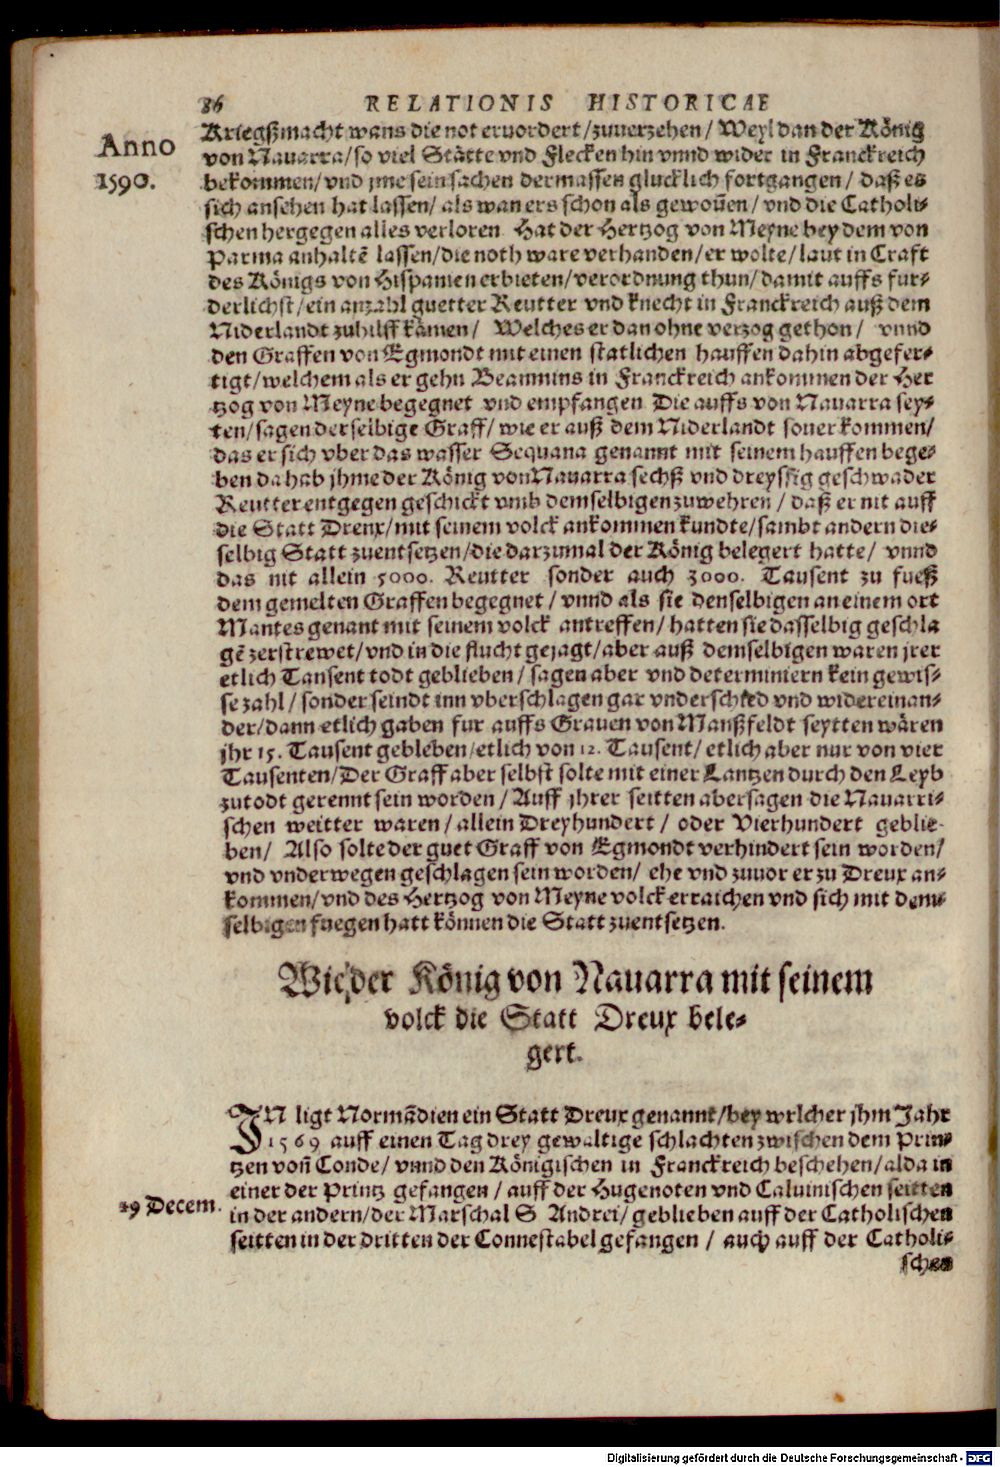 86 RELATIONIS HISTORICAE
Anno
1590.
Kriegßmacht wans die not ervordert/zuuerzehen/ Weyl dan der König
von Nauarra/so viel Stätte vnd Flecken hin vnnd wider in Franckreich
bekommen/vnd jme sein sachen dermassen glucklich fortgangen/ daß es
sich ansehen hat lassen/ als wan ers schon als gewoūen/ vnd die Catholi-
schen hergegen alles verloren Hat der Hertzog von Meyne bey dem von
Parma anhaltē lassen/die noth ware verhanden/er wolte/laut in Craft
des Königs von Hispanien erbieten/verordnung thun/damit auffs fur-
derlichst/ein anzahl guetter Reutter vnd knecht in Franckreich auß dem
Niderlandt zuhilff kämen/ Welches er dan ohne verzog gethon/ vnnd
den Graffen von Egmondt mit einen statlichen hauffen dahin abgefer-
tigt/welchem als er gehn Beaumins in Franckreich ankommen der Her
tzog von Meyne begegnet vnd empfangen Die auffs von Nauarra sey-
ten/sagen derselbige Graff/wie er auß dem Niderlandt souer kommen/
das er sich vber das wasser Sequana genannt mit seinem hauffen bege-
ben da hab jhme der König von Nauarra sechß vnd dreyssig geschwader
Reutter entgegen geschickt vmb demselbigen zuwehren/ daß er nit auff
die Statt Dreux/mit seinem volck ankommen kundte/sambt andern die-
selbig Statt zuentsetzen/die darzumal der König belegert hatte/ vnnd
das nit allein 5000. Reutter sonder auch 3000. Tausent zu fueß
dem gemelten Graffen begegnet/ vnnd als sie denselbigen an einem ort
Mantes genant mit seinem volck antreffen/ hatten sie dasselbig geschla
gē zerstrewet/vnd in die flucht gejagt/aber auß demselbigen waren jrer
etlich Tausent todt geblieben/sagen aber vnd determiniern kein gewis-
se zahl/sonder seindt inn vberschlagen gar vnderschied vnd widereinan-
der/dann etlich gaben fur auffs Grauen von Manßfeldt seytten wären
jhr 15. Tausent gebleben/etlich von 12. Tausent/etlich aber nur von vier
Tausenten/Der Graff aber selbst solte mit einer Lantzen durch den Leyb
zutodt gerennt sein worden/ Auff jhrer seitten aber sagen die Nauarri-
schen weitter waren/allein Dreyhundert/ oder Vierhundert geblie-
ben/ Also solte der guet Graff von Egmondt verhindert sein worden/
vnd vnderwegen geschlagen sein worden/ ehe vnd zuuor er zu Dreux an-
kommen/vnd des Hertzog von Meyne volck erraichen vnd sich mit dem-
selbigen fuegen hatt können die Statt zuentsetzen.
Wie der König von Nauarra mit seinem
volck die Statt Dreux bele-
gert.
IN ligt Normādien ein Statt Dreux genannt/bey welcher jhm Jahr
1569 auff einen Tag drey gewaltige schlachten zwischen dem Prin-
tzen voñ Conde/ vnnd den Königischen in Franckreich beschehen/alda in
einer der Printz gefangen/ auff der Hugenoten vnd Caluinischen seitten
29 Decem.
in der andern/der Marschal S Andrei/geblieben auff der Catholischen
seitten in der dritten der Connestabel gefangen/ auch auff der Catholi-
schen
Digitalisierung gefördert durch die Deutsche Forschungsgemeinschaft - DFG